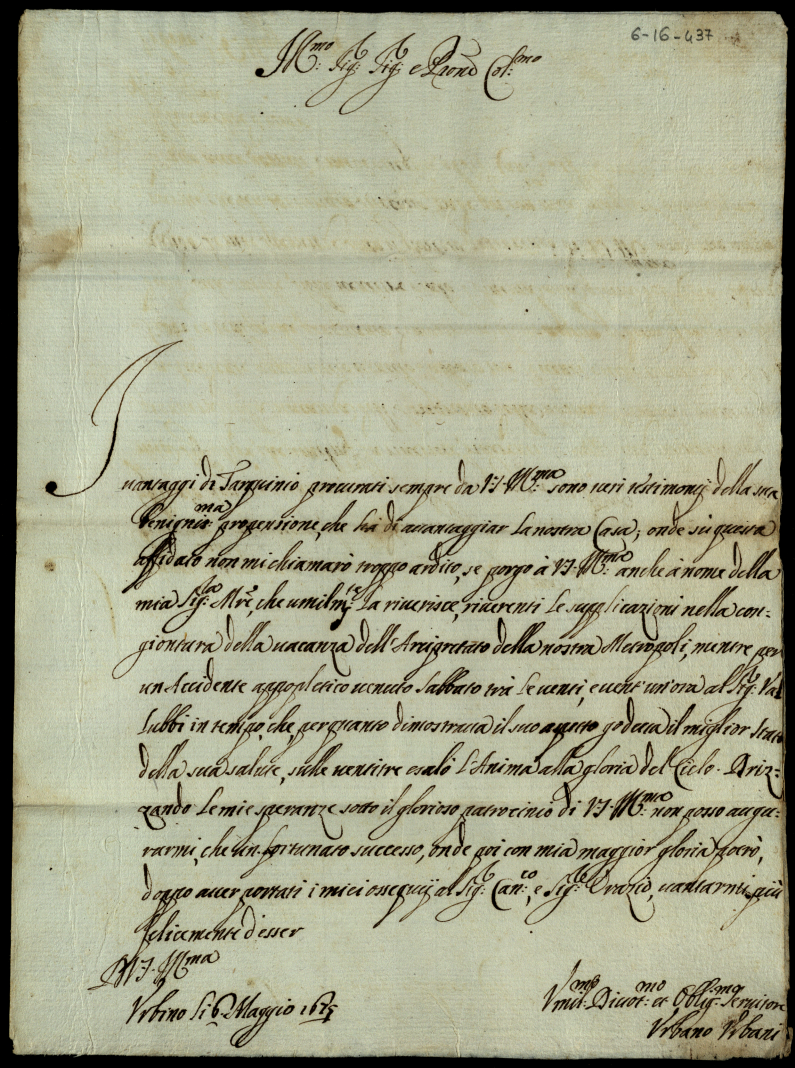 6-16-437
Ill.mo Sig.r Sig.r e Pron Col.mo
I
vantaggi di Tarquinio procurati sempre da V.S. Ill.ma sono veri testimonij della sua
benig.ma propensione, che hà di avantaggiar la nostra Casa; onde sù questa
affidato non mi chiamarò troppo ardito, se porgo à V.S. Ill.ma anche à nome della
mia Sig.ra M.re, che umilm.te La riverisce, riverenti le supplicazioni nella con-
giontura della vacanza dell'Arcipretato della nostra Metropoli, mentre per
un Accidente appopletico venuto Sabbato trà le venti, e vent'un'ora al Sig.r Val
lubbi in tempo, che, per quanto dimostrava il suo aspetto godeva il miglior stato
della sua salute, sulle ventitre esalò l'Anima alla gloria del Cielo. Driz-
zando le mie speranze sotto il glorioso patrocinio di V.S. Ill.ma non posso augu-
rarmi, che un fortunato successo, onde poi con mia maggior gloria potrò,
doppo aver portati i miei ossequij al Sig.r Can.co, e Sig.r Orazio, vantarmi più
felicemente d'esser
D V.S. Ill.ma
Urbino li 6 Maggio
Umil.mo Divot.mo et Oblig.mo Servitore
Urbano Urbani